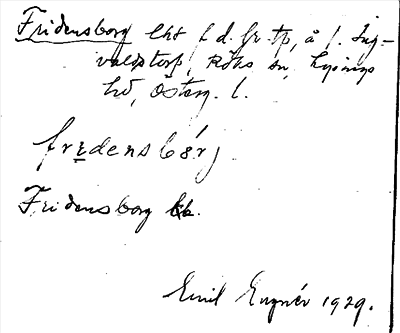 Fridensborg lht f. d. gr. tp, å f. Ing-
valdstorp, Röks sn, Lysings
hd, Österg. l.
frɪdensbórj
Fridensborg
Emil Eugnér 1929.